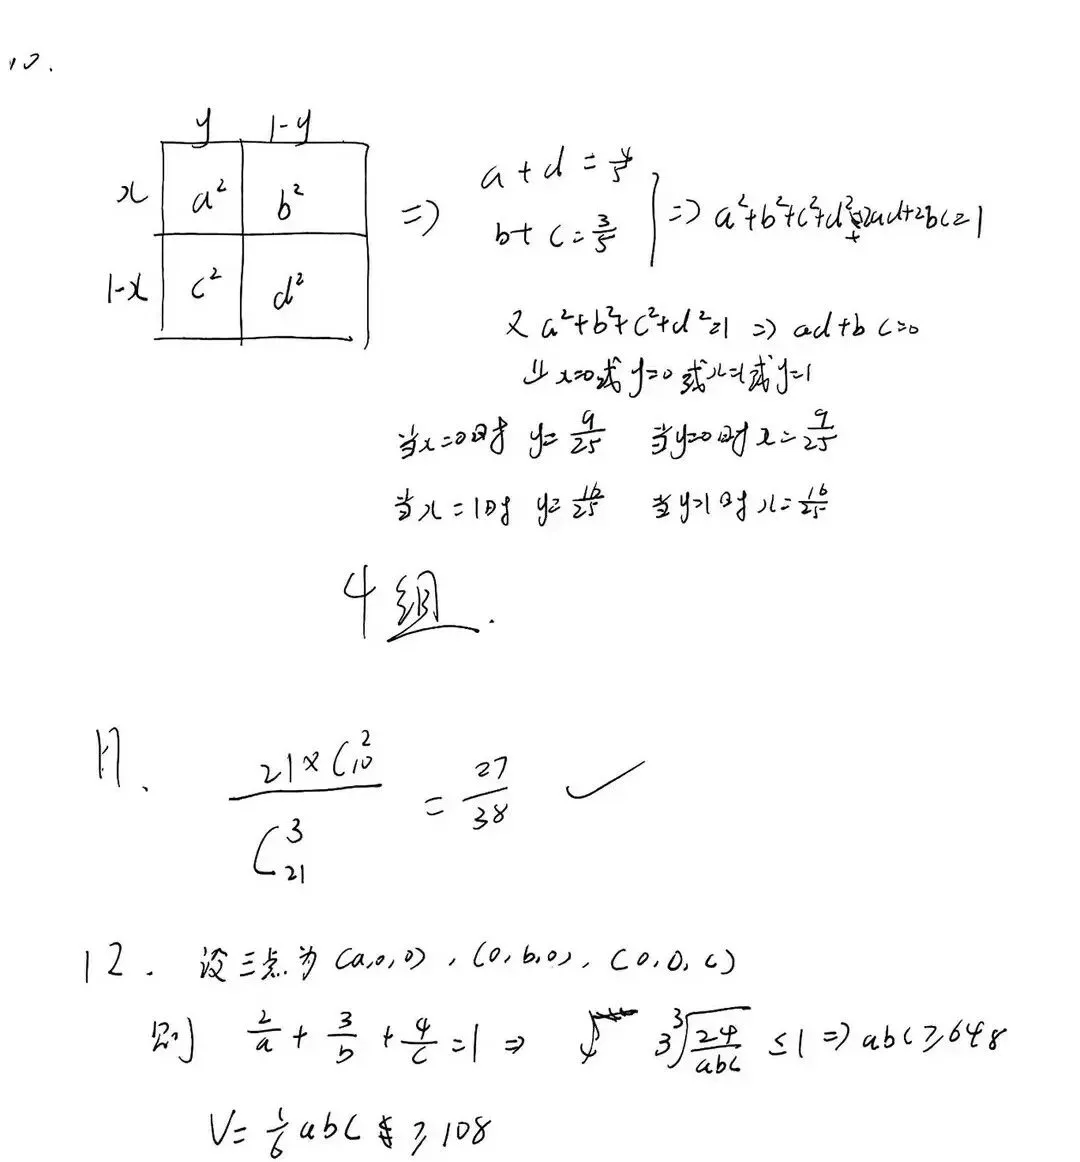 10.
y 1-y
x a² b²
1-x c² d²
⇒ a+d=4/5
b+c=3/5
⇒ a²+b²+c²+d²+2ad+2bc=1
又 a²+b²+c²+d²=1 ⇒ ad+bc=0
⇓ x=0或y=0或x=1或y=1
当x=0时 y=9/25 当y=0时 x=9/25
当x=1时 y=16/25 当y=1时 x=16/25
4组.
11. (21×C₁₀²)/C₂₁³ = 27/38 ✓
12. 设三点为(a,0,0),(0,b,0),(0,0,c)
则 2/a + 3/b + 4/c = 1 ⇒ 3∛(24/abc) ≤ 1 ⇒ abc ≥ 648
V=1/6 abc ≥ 108